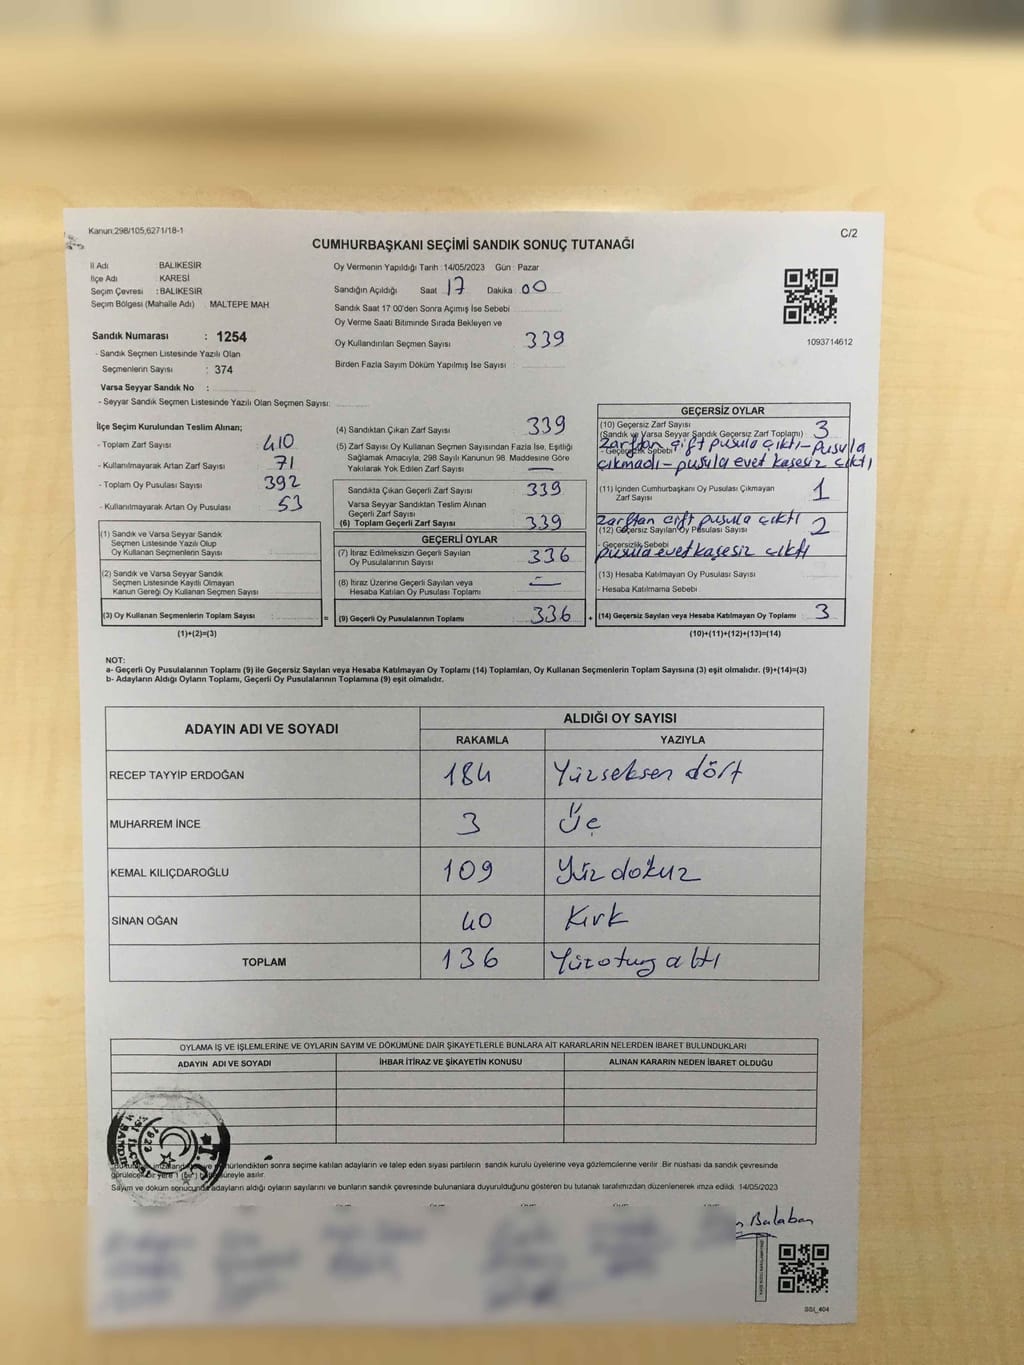 Kanun:298/105,6271/18-1
C/2
CUMHURBAŞKANI SEÇİMİ SANDIK SONUÇ TUTANAĞI
İl Adı : BALIKESİR
İlçe Adı : KARESİ
Seçim Çevresi : BALIKESİR
Seçim Bölgesi (Mahalle Adı) : MALTEPE MAH
Sandık Numarası : 1254
- Sandık Seçmen Listesinde Yazılı Olan
Seçmenlerin Sayısı : 374
Varsa Seyyar Sandık No :
- Seyyar Sandık Seçmen Listesinde Yazılı Olan Seçmen Sayısı:
Oy Vermenin Yapıldığı Tarih : 14/05/2023 Gün : Pazar
Sandığın Açıldığı Saat 17 Dakika : 00
Sandık Saat 17:00'den Sonra Açımış İse Sebebi
Oy Verme Saati Bitiminde Sırada Bekleyen ve
Oy Kullandırılan Seçmen Sayısı 339
Birden Fazla Sayım Döküm Yapılmış İse Sayısı :
1093714612
İlçe Seçim Kurulundan Teslim Alınan;
- Toplam Zarf Sayısı : 410
- Kullanılmayarak Artan Zarf Sayısı : 71
- Toplam Oy Pusulası Sayısı : 392
- Kullanılmayarak Artan Oy Pusulası : 53
(1) Sandık ve Varsa Seyyar Sandık
Seçmen Listesinde Yazılı Olup
Oy Kullanan Seçmenlerin Sayısı :
(2) Sandık ve Varsa Seyyar Sandık
Seçmen Listesinde Kayıtlı Olmayan
Kanun Gereği Oy Kullanan Seçmen Sayısı :
(3) Oy Kullanan Seçmenlerin Toplam Sayısı :
(1)+(2)=(3)
(4) Sandıktan Çıkan Zarf Sayısı : 339
(5) Zarf Sayısı Oy Kullanan Seçmen Sayısından Fazla İse, Eşitliği
Sağlamak Amacıyla, 298 Sayılı Kanunun 98. Maddesine Göre
Yakılarak Yok Edilen Zarf Sayısı : —
Sandıkta Çıkan Geçerli Zarf Sayısı : 339
Varsa Seyyar Sandıktan Teslim Alınan
Geçerli Zarf Sayısı
(6) Toplam Geçerli Zarf Sayısı : 339
GEÇERLİ OYLAR
(7) İtiraz Edilmeksizin Geçerli Sayılan
Oy Pusulalarının Sayısı : 336
(8) İtiraz Üzerine Geçerli Sayılan veya
Hesaba Katılan Oy Pusulası Toplamı : —
= (9) Geçerli Oy Pusulalarının Toplamı : 336
GEÇERSİZ OYLAR
(10) Geçersiz Zarf Sayısı
(Sandık ve Varsa Seyyar Sandık Geçersiz Zarf Toplamı) : 3
- Geçersizlik Sebebi
Zarftan çift pusula çıktı-pusula
çıkmadı-pusula evet kaşesiz çıktı
(11) İçinden Cumhurbaşkanı Oy Pusulası Çıkmayan
Zarf Sayısı 1
Zarftan çift pusula çıktı
(12) Geçersiz Sayılan Oy Pusulası Sayısı 2
- Geçersizlik Sebebi
pusula evet kaşesiz çıktı
(13) Hesaba Katılmayan Oy Pusulası Sayısı
- Hesaba Katılmama Sebebi
+ (14) Geçersiz Sayılan veya Hesaba Katılmayan Oy Toplamı : 3
(10)+(11)+(12)+(13)=(14)
NOT:
a- Geçerli Oy Pusulalarının Toplamı (9) ile Geçersiz Sayılan veya Hesaba Katılmayan Oy Toplamı (14) Toplamları, Oy Kullanan Seçmenlerin Toplam Sayısına (3) eşit olmalıdır. (9)+(14)=(3)
b- Adayların Aldığı Oyların Toplamı, Geçerli Oy Pusulalarının Toplamına (9) eşit olmalıdır.
ADAYIN ADI VE SOYADI
ALDIĞI OY SAYISI
RAKAMLA YAZIYLA
RECEP TAYYİP ERDOĞAN 184 Yüzseksen dört
MUHARREM İNCE 3 Üç
KEMAL KILIÇDAROĞLU 109 Yüz dokuz
SİNAN OĞAN 40 Kırk
TOPLAM 136 Yüzotuz altı
OYLAMA İŞ VE İŞLEMLERİNE VE OYLARIN SAYIM VE DÖKÜMÜNE DAİR ŞİKAYETLERLE BUNLARA AİT KARARLARIN NELERDEN İBARET BULUNDUKLARI
ADAYIN ADI VE SOYADI İHBAR İTİRAZ VE ŞİKAYETİN KONUSU ALINAN KARARIN NEDEN İBARET OLDUĞU
mühürlendikten sonra seçime katılan adayların ve talep eden siyasi partilerin sandık kurulu üyelerine veya gözlemcilerine verilir. Bir nüshası da sandık çevresinde
görülecek bir yere 1 (bir) süreyle asılır.
Sayım ve döküm sonucunda adayların aldığı oyların sayılarını ve bunların sandık çevresinde bulunanlara duyurulduğunu gösteren bu tutanak tarafımızdan düzenlenerek imza edildi. 14/05/2023
Balaban
SSI_404